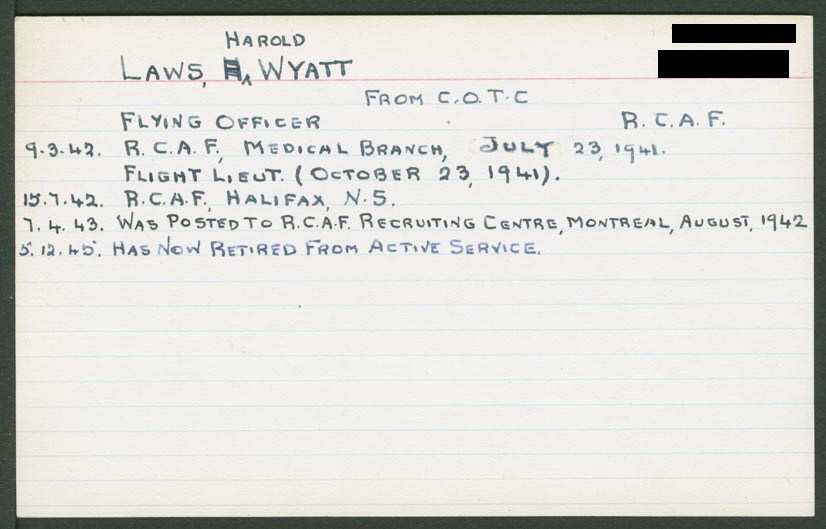 HAROLD
LAWS, H. WYATT
FROM C.O.T.C
FLYING OFFICER R.C.A.F.
9.3.42. R.C.A.F., MEDICAL BRANCH, JULY 23, 1941.
FLIGHT LIEUT. (OCTOBER 23, 1941).
15.7.42. R.C.A.F., HALIFAX, N.S.
7.4.43. WAS POSTED TO R.C.A.F. RECRUITING CENTRE, MONTREAL, AUGUST, 1942
5.12.45. HAS NOW RETIRED FROM ACTIVE SERVICE.